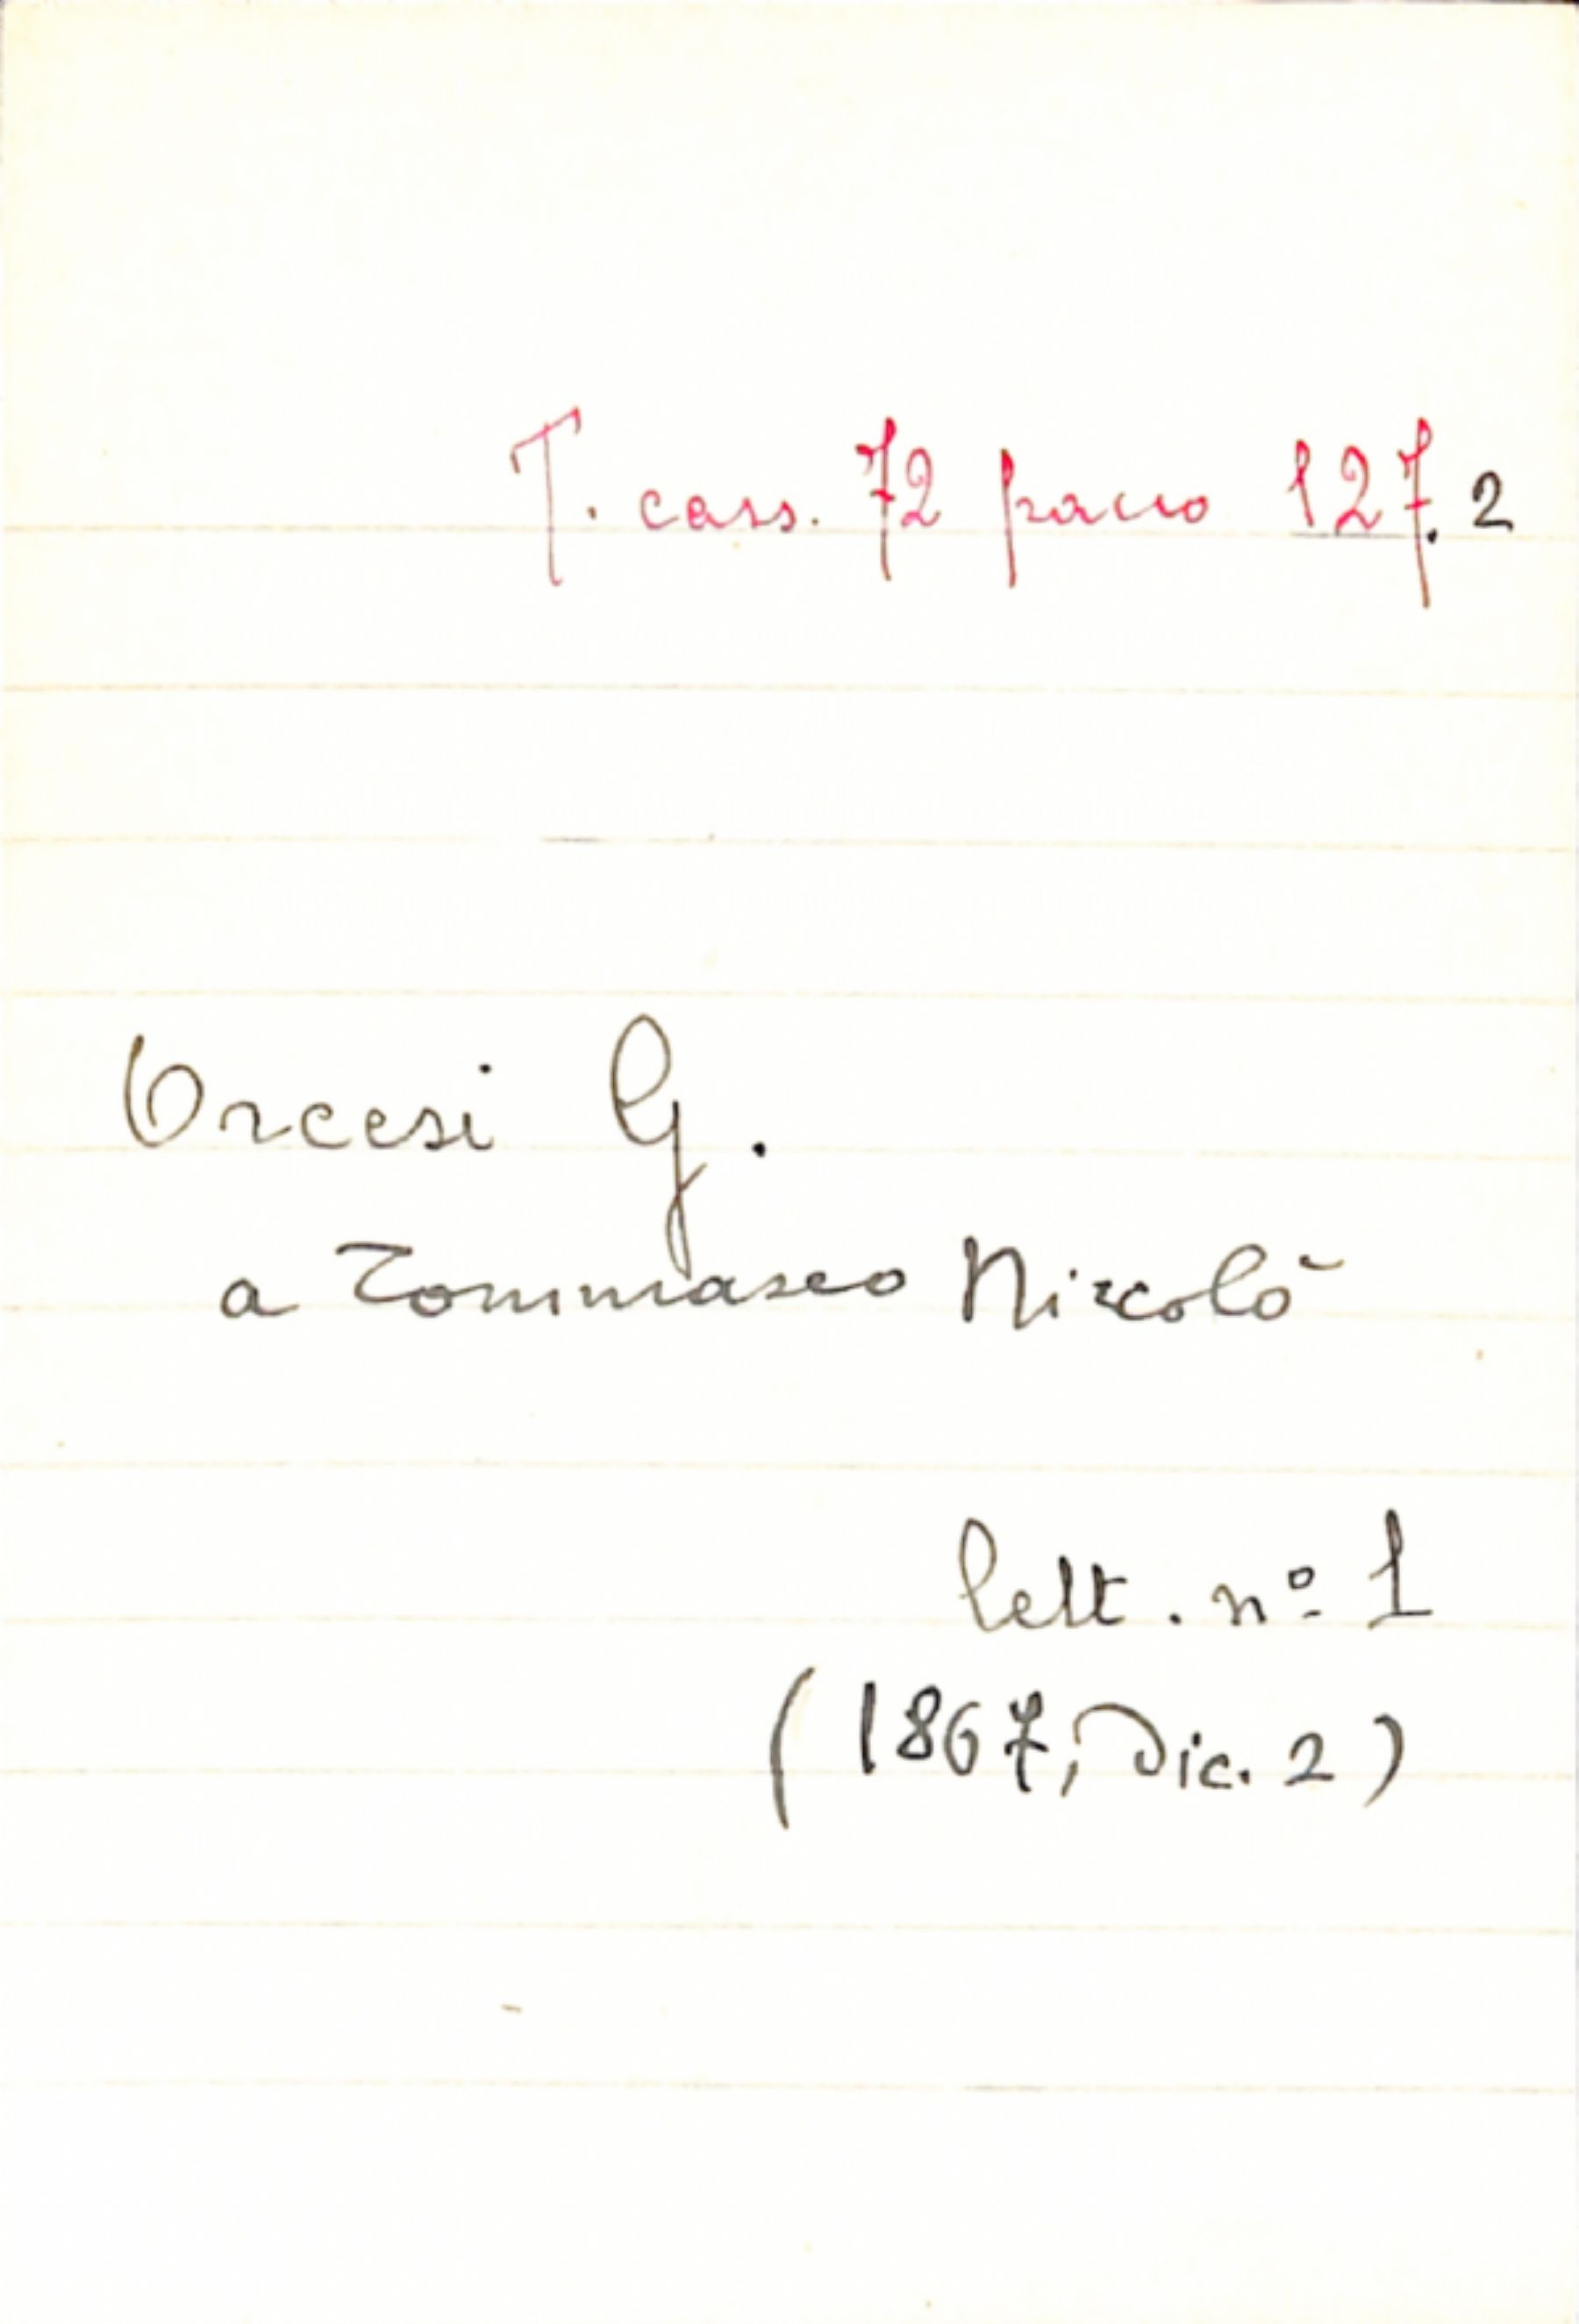 T. cass. 72 pacco 127.2
Orcesi G.
a Tommaseo Niccolò
lett. nº 1
(1867, Dic. 2)